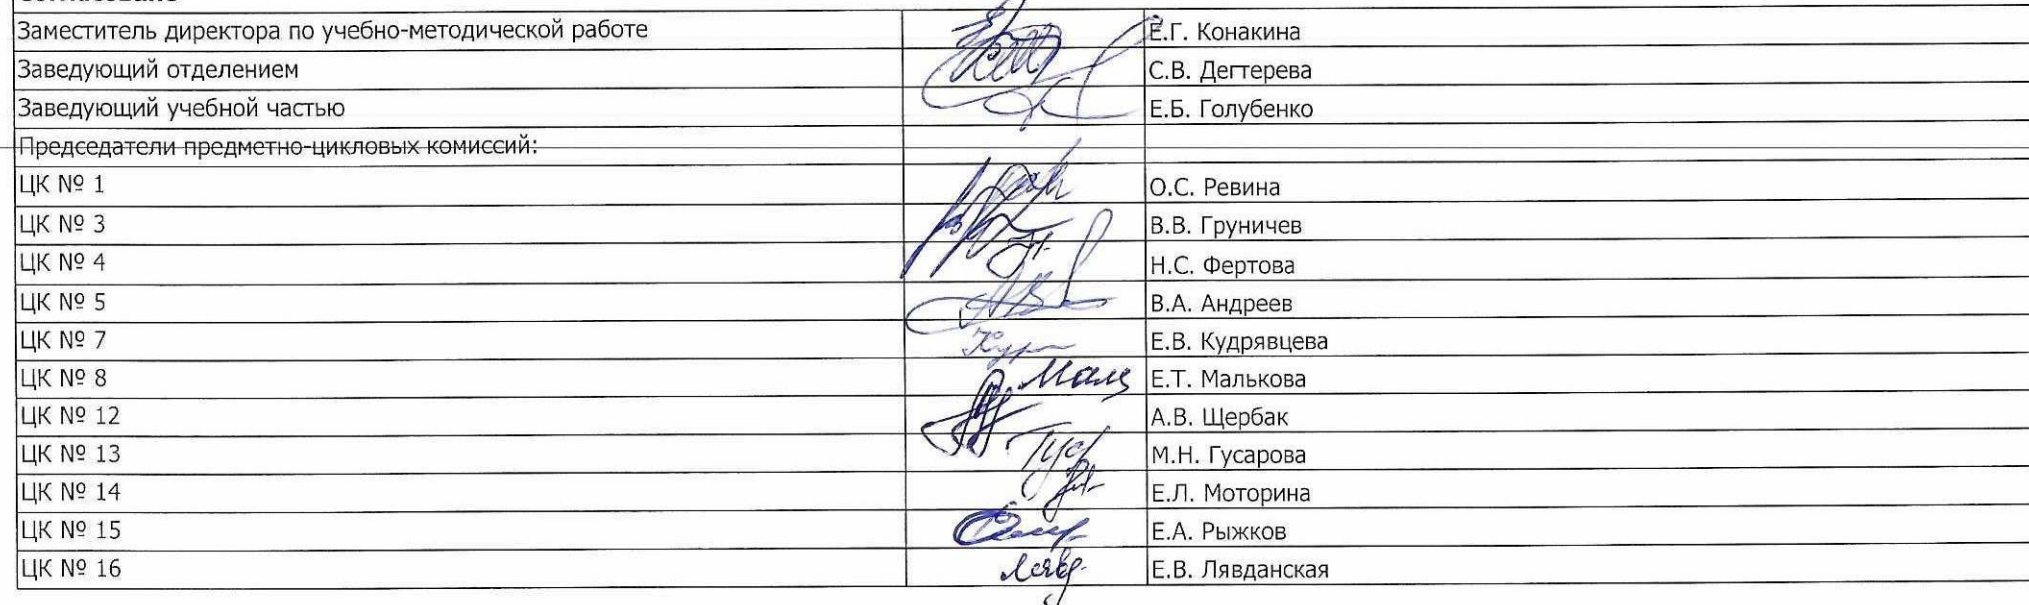 Заместитель директора по учебно-методической работе Е.Г. Конакина
Заведующий отделением С.В. Дегтерева
Заведующий учебной частью Е.Б. Голубенко
Председатели предметно-цикловых комиссий:
ЦК № 1 О.С. Ревина
ЦК № 3 В.В. Груничев
ЦК № 4 Н.С. Фертова
ЦК № 5 В.А. Андреев
ЦК № 7 Е.В. Кудрявцева
ЦК № 8 Е.Т. Малькова
ЦК № 12 А.В. Щербак
ЦК № 13 М.Н. Гусарова
ЦК № 14 Е.Л. Моторина
ЦК № 15 Е.А. Рыжков
ЦК № 16 Е.В. Лявданская